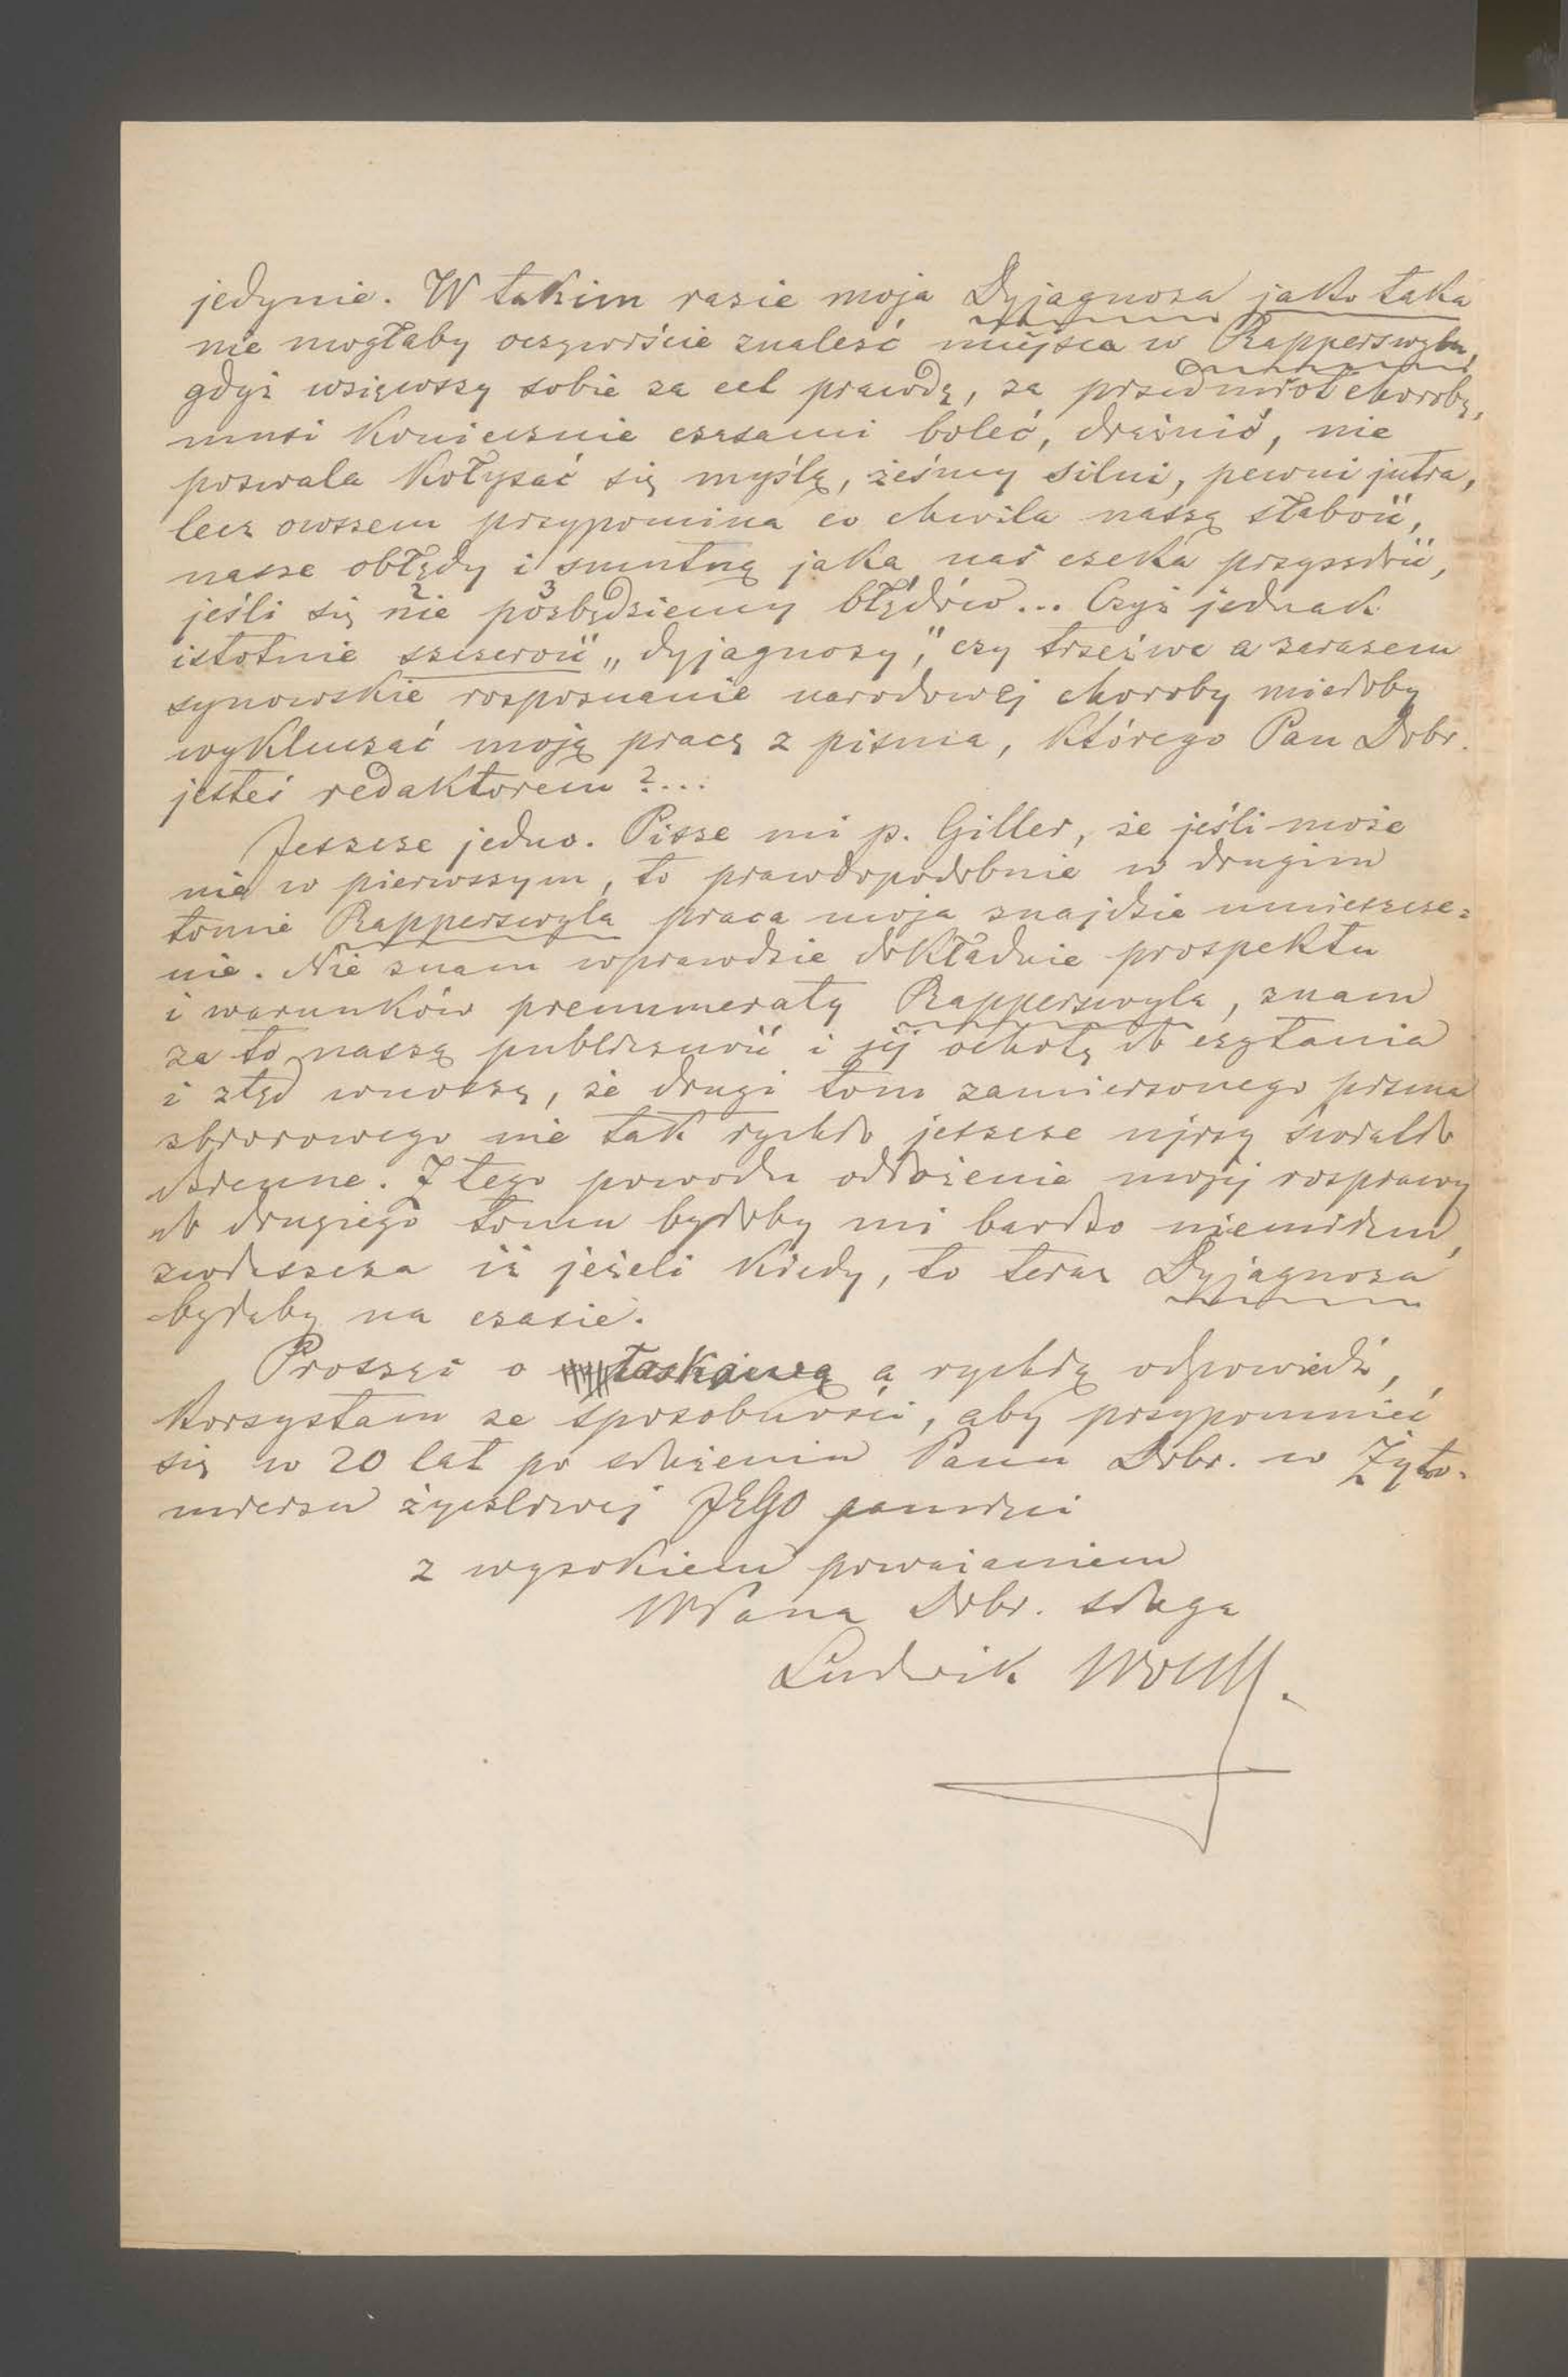 jedynie. W takim razie moja Dyjagnoza jako taka
nie mogłaby oczywiście znaleść miejsca w Rapperswylu,
gdyż wziąwszy sobie za cel prawdę, za przedmiot chorobę,
musi koniecznie czasami boleć, drażnić, nie
pozwala kołysać się myślą, żeśmy silni, pewni jutra,
lecz owszem przypomina co chwila naszą słabość,
nasze obłędy i smutną jaka nas czeka przyszłość,
jeśli się nie pozbędziemy błędów... Czyż jednak
istotnie szczerość „dyjagnozy," czy trzeźwe a zarazem
synowskie rozpoznanie narodowej choroby miałoby
wykluczać moją pracę z pisma, którego Pan Dobr.
jesteś redaktorem?...
Jeszcze jedno. Pisze mi p. Giller, że jeśli może
nie w pierwszym, to prawdopodobnie w drugim
tomie Rapperswyla praca moja znajdzie umieszcze=
nie. Nie znam wprawdzie dokładnie prospektu
i warunków prenumeraty Rapperswyla, znam
za to naszą publiczność i jéj ochotę do czytania
i ztąd wnoszę, że drugi tom zamierzonego pisma
zbiorowego nie tak rychło jeszcze ujrzy światło
dzienne. Z tego powodu odłożenie mojéj rozprawy
do drugiego tomu byłoby mi bardzo niemiłem,
zwłaszcza iż jeżeli kiedy, to teraz Dyjagnoza
byłaby na czasie.
Prosząc o łaskawą a rychłą odpowiedź,
korzystam ze sposobności, aby przypomnieć
się w 20 lat po złożeniu Panu Dobr. w Żyto-
mierzu życzliwej JEGO pamięci
z wysokiem poważaniem
WPana Dobr. sługa
Ludwik Wolff.